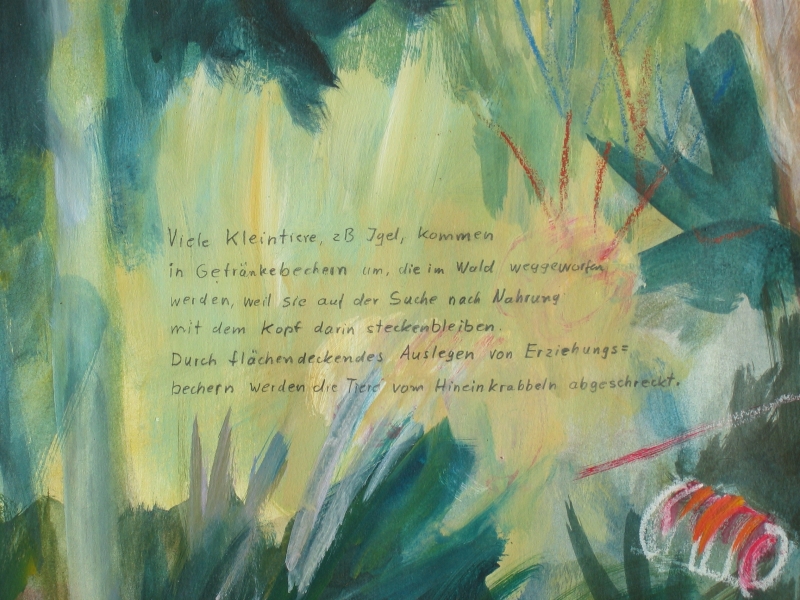 Viele Kleintiere, zB Igel, kommen
in Getränkebechern um, die im Wald weggeworfen
werden, weil sie auf der Suche nach Nahrung
mit dem Kopf darin steckenbleiben.
Durch flächendeckendes Auslegen von Erziehungs=
bechern werden die Tiere vom Hineinkrabbeln abgeschreckt.